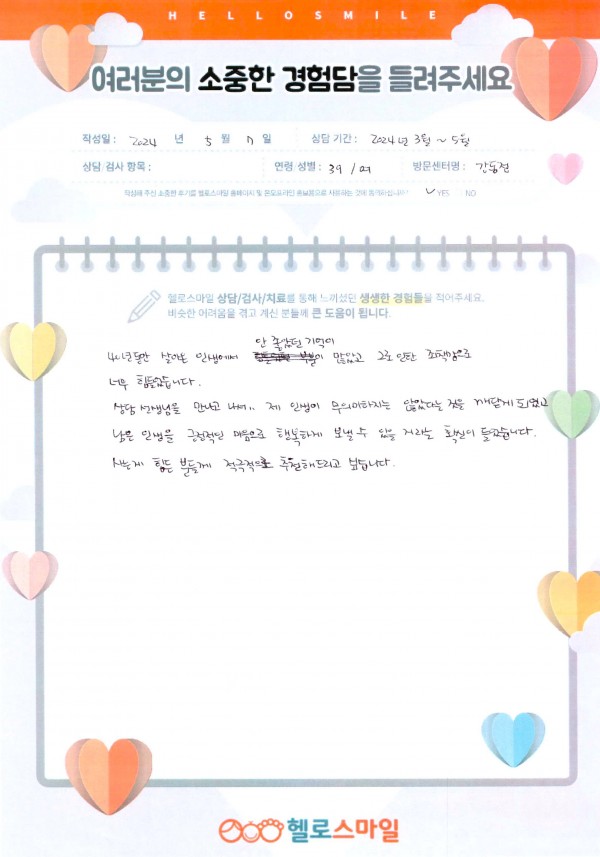 HELLOSMILE
여러분의 소중한 경험담을 들려주세요
작성일 : 2024 년 5 월 17 일 상담 기간 : 2024년 3월 ~ 5월
상담/검사 항목 : 연령/성별 : 39 / 여 방문센터명 : 강동점
작성해 주신 소중한 후기를 헬로스마일 홈페이지 및 온오프라인 홍보용으로 사용하는 것에 동의하십니까? ✓ YES NO
헬로스마일 상담/검사/치료를 통해 느끼셨던 생생한 경험들을 적어주세요.
비슷한 어려움을 겪고 계신 분들께 큰 도움이 됩니다.
안 좋았던 기억이
40년동안 살아온 인생에서 많았고 그로 인한 죄책감으로
너무 힘들었습니다.
상담 선생님을 만나고 나서.. 제 인생이 무의미하지는 않았다는 것을 깨닫게 되었고
남은 인생을 긍정적인 마음으로 행복하게 보낼 수 있을 거라는 확신이 들었습니다.
사는게 힘든 분들께 적극적으로 추천해드리고 싶습니다.
헬로스마일